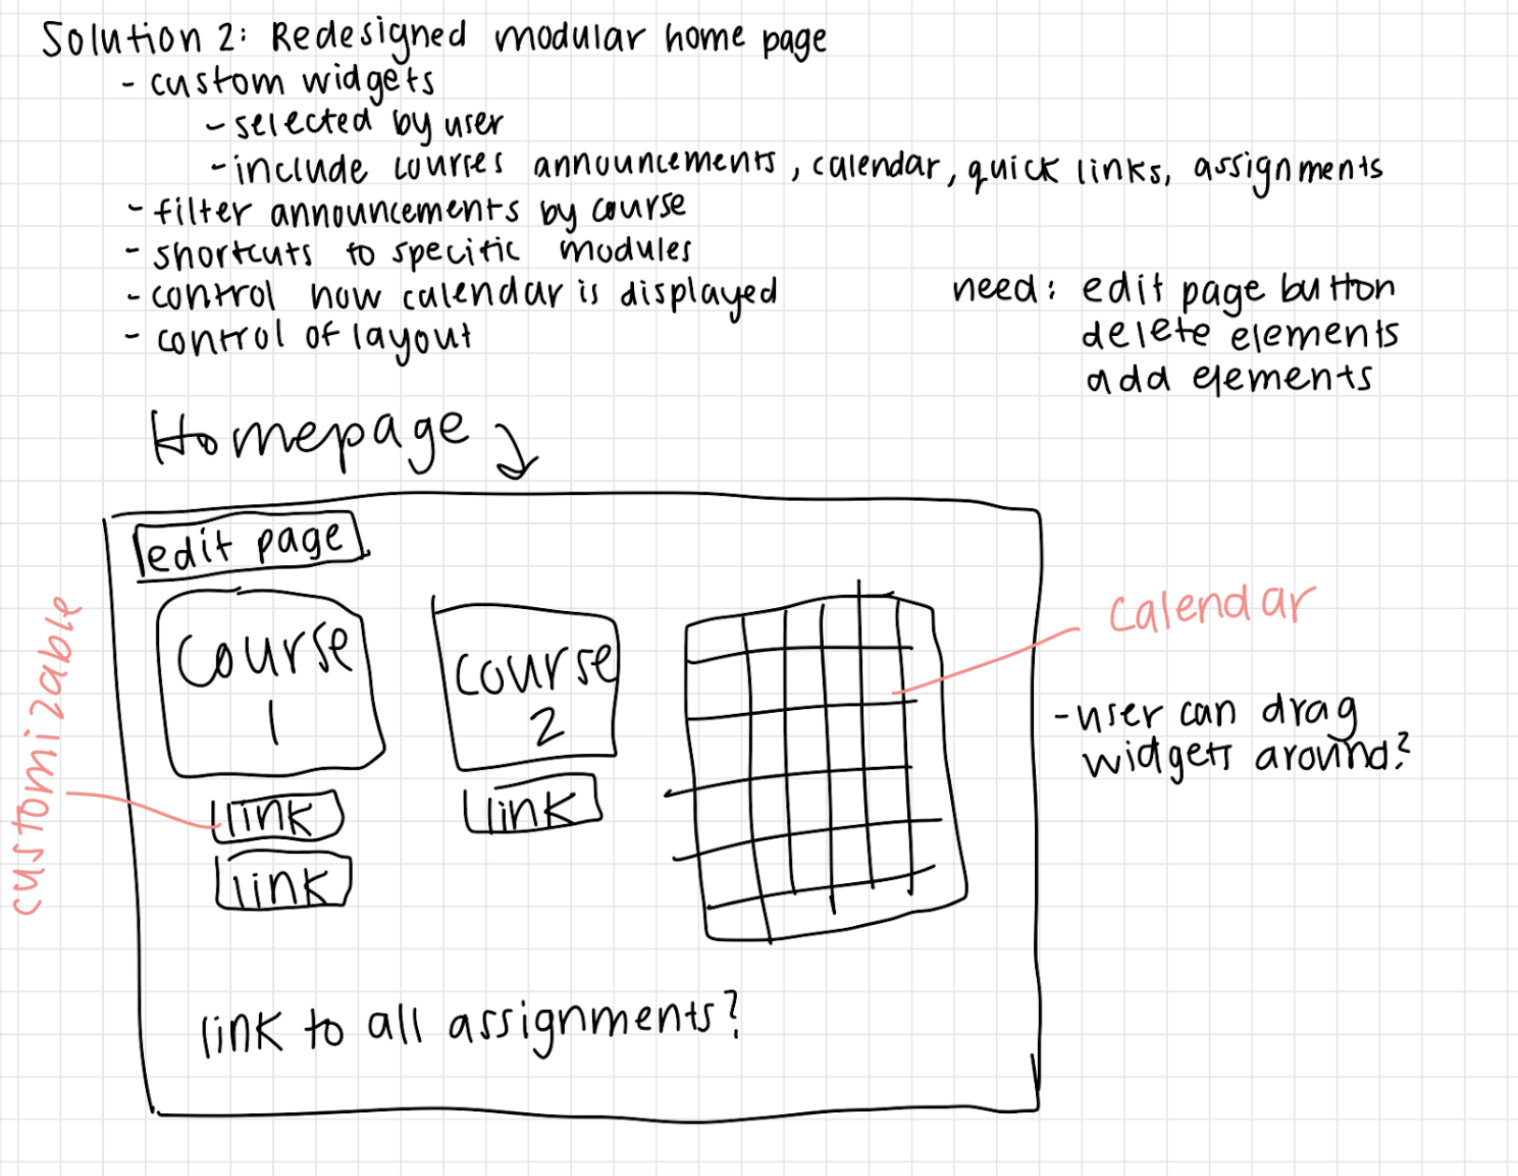 Solution 2: Redesigned modular home page
- custom widgets
- selected by user
- include courses announcements, calendar, quick links, assignments
- filter announcements by course
- shortcuts to specific modules
- control how calendar is displayed
- control of layout
need: edit page button
delete elements
add elements
Homepage
edit page
course
1
link
link
course
2
link
customizable
calendar
- user can drag
widgets around?
link to all assignments?